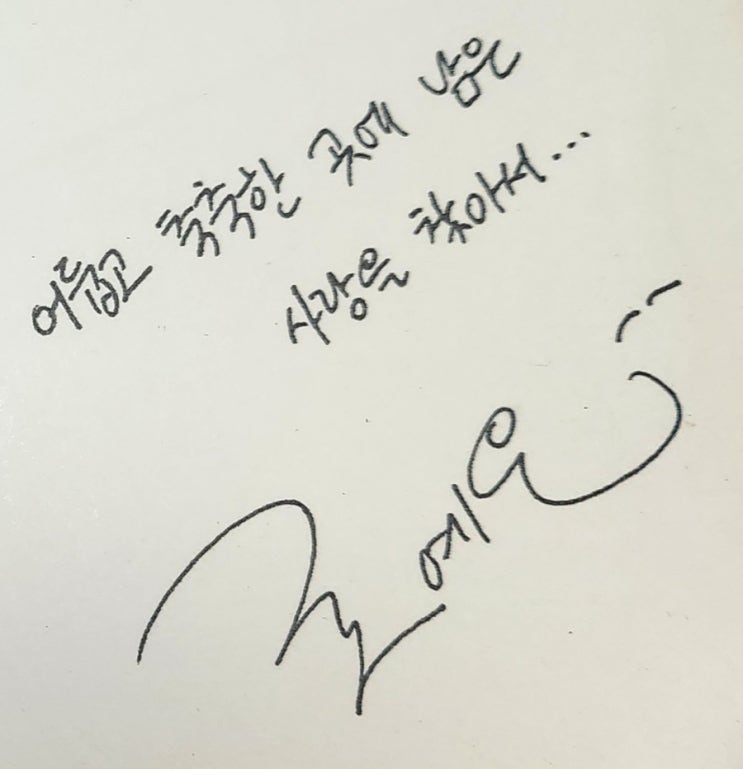 어둡고 축축한 곳에 남은
사랑을 찾아서...